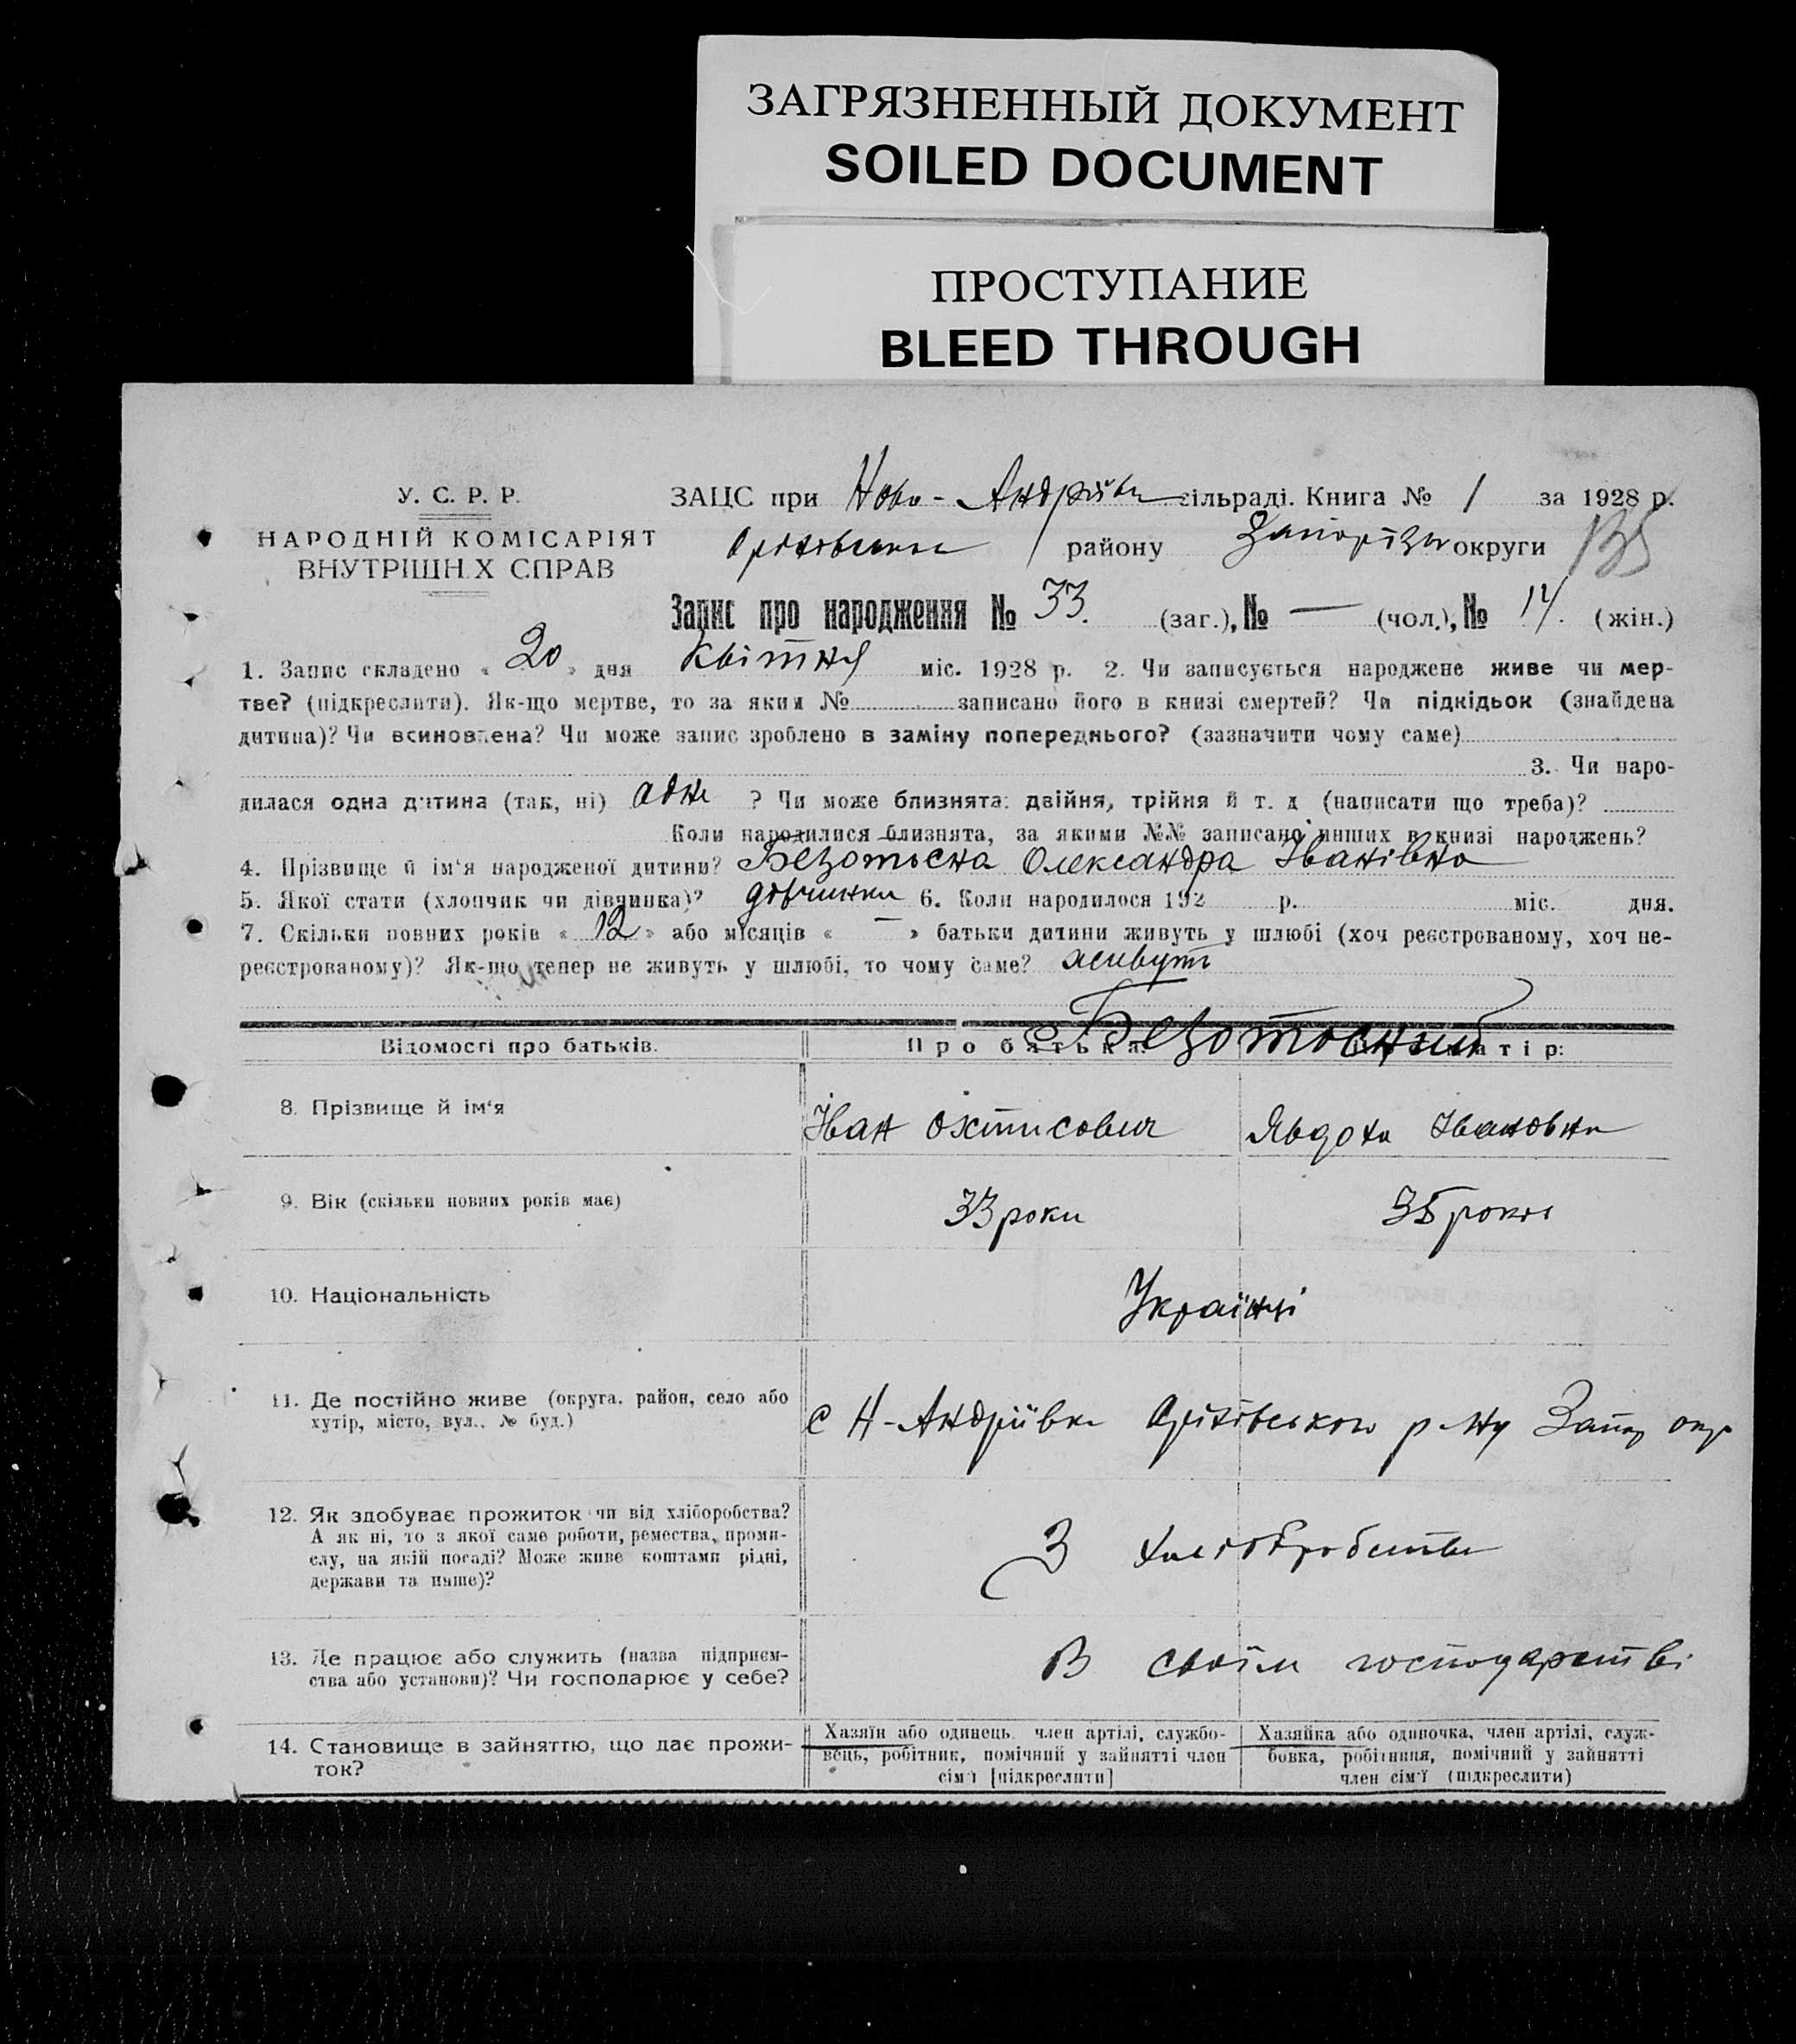 ЗАГРЯЗНЕННЫЙ ДОКУМЕНТ
SOILED DOCUMENT
ПРОСТУПАНИЕ
BLEED THROUGH
У. С. Р. Р.
НАРОДНІЙ КОМІСАРІЯТ
ВНУТРІШН Х СПРАВ
ЗАЦС при Ново-Андрїївк сільраді. Книга № 1 за 1928 р.
району Запоріз округи
Запис про народження № 33. (заг.), № — (чол.), № 14. (жін.)
1. Запис складено « 20 » дня Квітня міс. 1928 р. 2. Чи записується народжене живе чи мер-
тве? (підкреслити). Як-що мертве, то за яким № записано його в книзі смертей? Чи підкідьок (знайдена
дитина)? Чи всиновлена? Чи може запис зроблено в заміну попереднього? (зазначити чому саме)
3. Чи наро-
дилася одна дитина (так, ні) одне ? Чи може близнята: двійня, трійня й т. д (написати що треба)?
Коли народилися близнята, за якими №№ записано инших в книзі народжень?
4. Прізвище й ім‘я народженої дитини? Безотосна Олександра Іванівна
5. Якої стати (хлопчик чи дівчинка)? дівчинка 6. Коли народилося 192 р. міс. дня.
7. Скільки повних років « 12 » або місяців « — » батьки дитини живуть у шлюбі (хоч реєстрованому, хоч не-
реєстрованому)? Як-що тепер не живуть у шлюбі, то чому саме? живуть
Безотосний
Відомості про батьків. Про батька: матір:
8. Прізвище й ім‘я Іван Охтисович Явдоха Івановна
9. Вік (скільки повних років має) 33 роки 35 роки
10. Національність Українці
11. Де постійно живе (округа. район, село або
хутір, місто, вул.. № буд.)
с Н-Андріівка Оріхівського р-ну Запор окр
12. Як здобуває прожиток чи від хліборобства?
А як ні, то з якої саме роботи, ремества, проми-
слу, на якій посаді? Може живе коштами рідні,
держави та инше)?
З хліборобства
13. Де працює або служить (назва підприєм-
ства або установи)? Чи господарює у себе?
В своїм господарстві
14. Становище в зайняттю, що дає прожи-
ток?
Хазяїн або одинець член артілі, службо-
вець, робітник, помічний у зайнятті член
сім‘ї [підкреслити]
Хазяйка або одиночка, член артілі, служ-
бовка, робітниця, помічний у зайнятті
член сім‘ї (підкреслити)